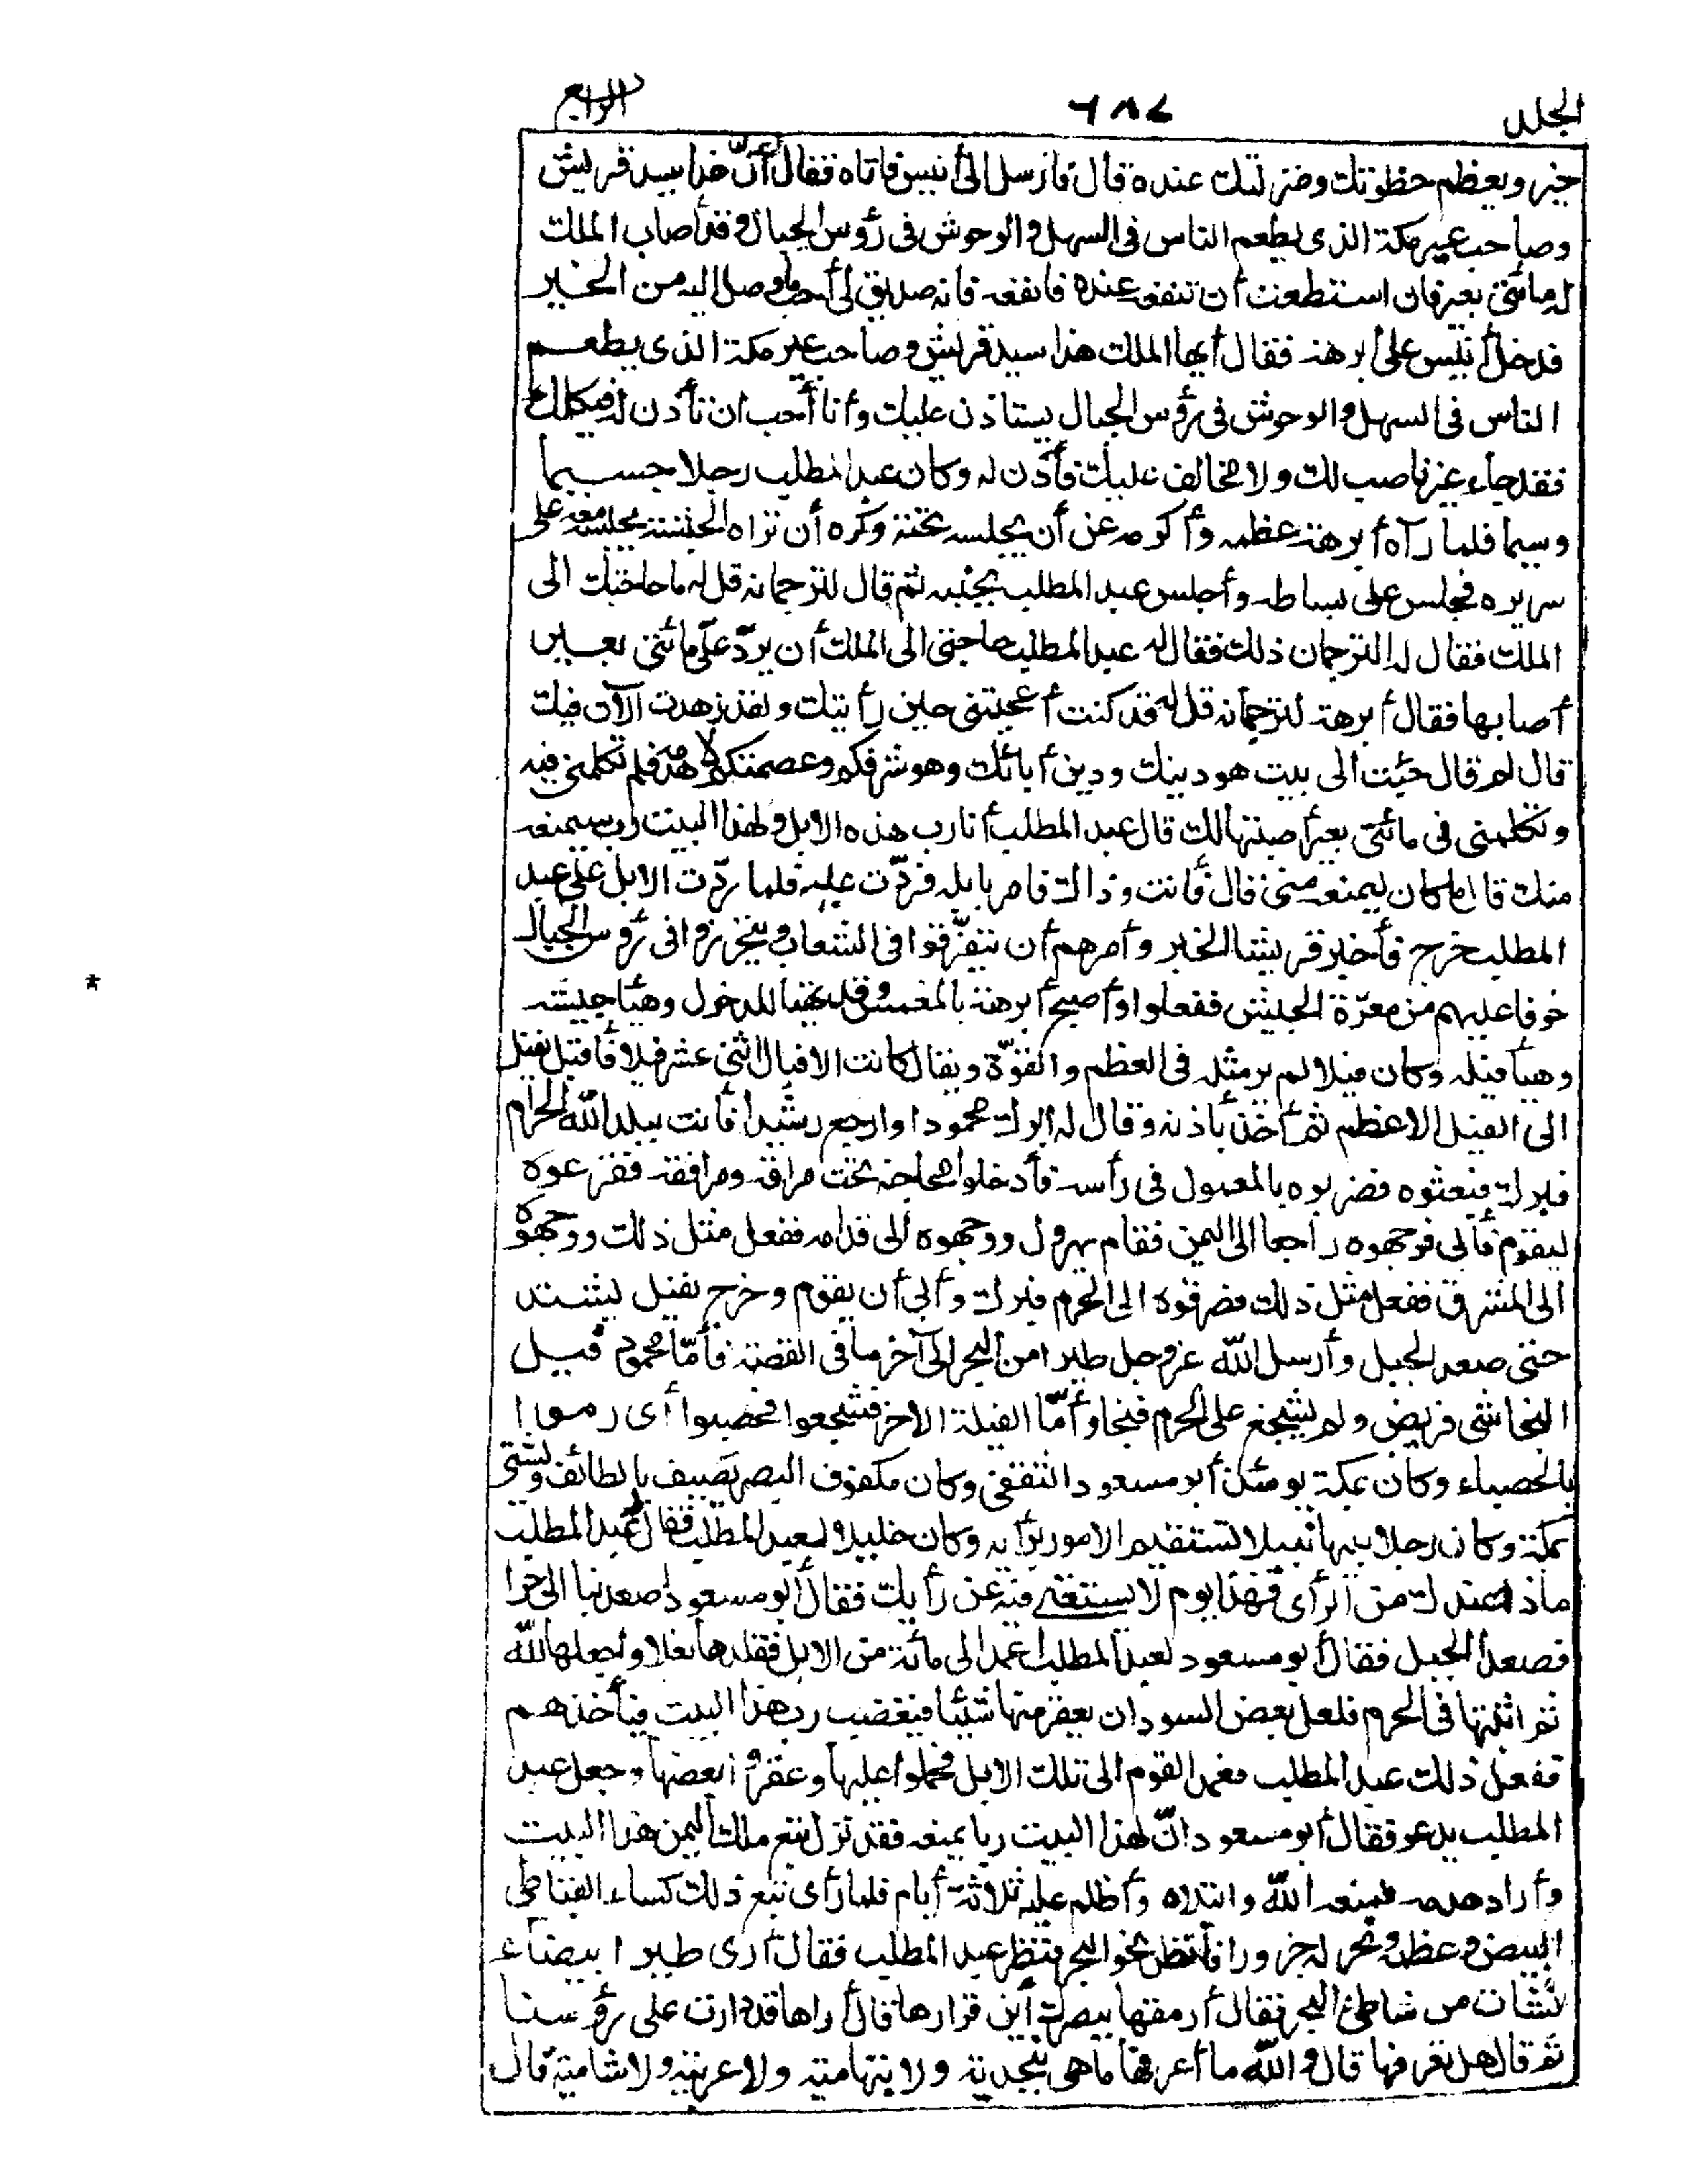 المجلد ٦٨٧ الرابع
خير ويعظم حظوتك ومنزلتك عنده قال فأرسل الى أنيس فأتاه فقال أنّ هذا سيد قريش
وصاحب عير مكة الذى يطعم الناس فى السهل والوحوش فى رؤس الجبال وقد أصاب الملك
له مائتى بعير فان استطعت أن تنفعه عنده فانفعه فانه صديق لى أحب ما وصل اليه من الخير
فدخل أنيس على أبرهة فقال أيها الملك هذا سيد قريش وصاحب عير مكة الذى يطعم
الناس فى السهل والوحوش فى رؤس الجبال يستاذن عليك وأنا أحب ان تأذن له فيكلمك
فقد جاء غير ناصب لك ولا مخالف عليك فأذن له وكان عبد المطلب رجلا جسيما
وسيما فلما رآه أبرهة عظمه وأكرمه عن أن يجلسه تحته وكره أن تراه الحبشة يجلسه معه على
سريره فجلس على بساطه وأجلس عبد المطلب بجنبه ثم قال لترجمانه قل له ما حاجتك الى
الملك فقال له الترجمان ذلك فقال له عبد المطلب حاجتى الى الملك أن يردّ علىّ مائتى بعير
أصابها فقال أبرهة لترجمانه قل له قد كنت أعجبتنى حين رأيتك ولقد زهدت الآن فيك
قال لم قال جئت الى بيت هو دينك ودين أبائك وهو شرفكم وعصمتكم لاهدمه فلم تكلمنى فيه
وتكلمنى فى مائتى بعير أصبتها لك قال عبد المطلب أنا رب هذه الابل ولهذا البيت رب سيمنعه
منك قال ما كان ليمنعه منى قال فأنت وذاك فامر بابله فردّت عليه فلما ردّت الابل على عبد
المطلب خرج فأخبر قريشا الخبر وأمرهم أن يتفرّقوا فى الشعاب ويتحرزوا فى رؤس الجبال
خوفا عليهم من معرّة الجيش ففعلوا وأصبح أبرهة بالمغمس وقد تهيأ للدخول وهيأ جيشه
وهيأ فيله وكان فيلا لم ير مثله فى العظم والقوّة ويقال كانت الافيال اثنى عشر فيلا فأقبل نفيل
الى الفيل الاعظم ثم أخذ بأذنه وقال له ابرك محمودا وارجع رشيدا فأنت ببلد الله الحرام
فبرك فبعثوه فضربوه بالمعول فى رأسه فأدخلوا محاجنه تحت مراقه ومرافقه ففزعوه
ليقوم فأبى فوجهوه راجعا الى اليمن فقام يهرول ووجهوه الى قدامه ففعل مثل ذلك ووجهوه
الى المشرق ففعل مثل ذلك فصرفوه الى الحرم فبرك وأبى أن يقوم وخرج نفيل يشتد
حتى صعد الجبل وأرسل الله عز وجل طيرا من البحر الى آخر ما فى القصة فأمّا محمود فيل
النجاشى فربض ولم يشجع على الحرم فنجا وأمّا الفيلة الاخر فشجعوا فحصبوا أى رموا
بالحصباء وكان بمكة يومئذ أبو مسعود الثقفى وكان مكفوف البصر يصيف بالطائف ويشتى
بمكة وكان رجلا نبيها نبيلا تستقيم الامور برأيه وكان خليلا لعبد المطلب فقال عبد المطلب
ماذا عندك من الرأى فهذا يوم لا يستغنى فيه عن رأيك فقال أبو مسعود اصعد بنا الى حرا
فصعدا الجبل فقال أبو مسعود لعبد المطلب اعمد الى مائة من الابل فقلدها نعلا واجعلها لله
ثم اثبتها فى الحرم فلعل بعض السودان يعقر منها شيئا فيغضب رب هذا البيت فيأخذهم
ففعل ذلك عبد المطلب فعمد القوم الى تلك الابل فحملوا عليها وعقروا بعضها وجعل عبد
المطلب يدعو فقال أبو مسعود انّ لهذا البيت ربا يمنعه فقد نزل تبع ملك اليمن هذا البيت
وأراد هدمه فمنعه الله وابتلاه وأظلم عليه ثلاثة أيام فلما رأى تبع ذلك كساه القباطى
البيض وعظمه ونحر له جزورا فانظر نحو البحر فنظر عبد المطلب فقال أرى طيرا بيضاء
نشأت من شاطئ البحر فقال أرمقها ببصرك أين قرارها قال أراها قد دارت على رؤسنا
ثم قال هل تعرفها قال والله ما أعرفها ما هى بنجدية ولا بتهامية ولا عربية ولا شامية قال